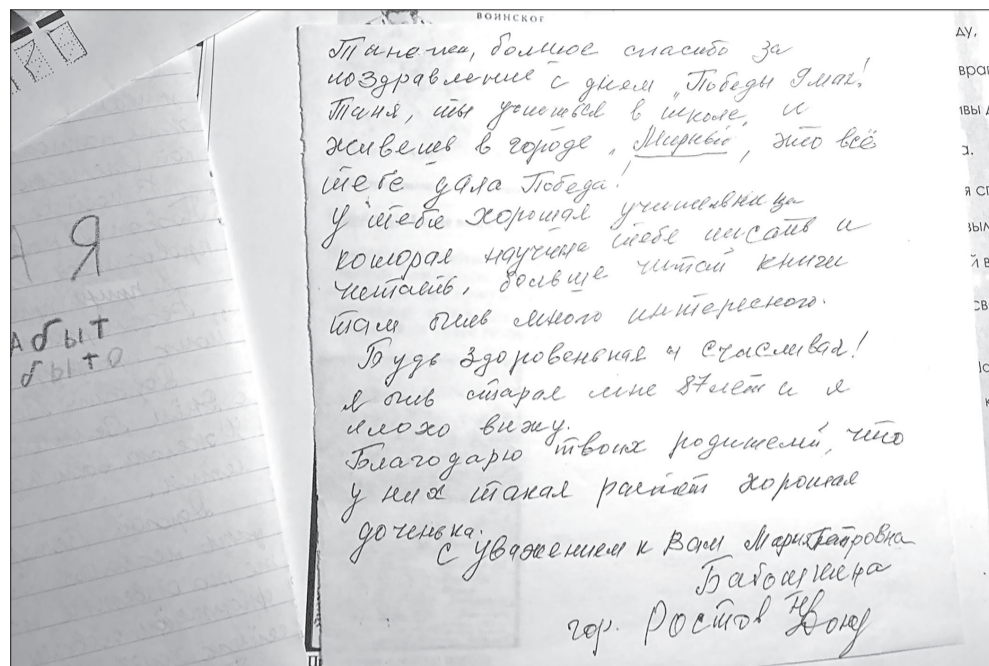 ВОИНСКОГ
Танечка, большое спасибо за
поздравление с днем „Победы 9 мая!
Таня, ты учишься в школе, и
живешь в городе „Мирный, это всё
тебе дала Победа!
У тебя хорошая учительница
которая научила тебе писать и
читаеть, больше читай книги
там очень много интересного.
Будь здоровенькая и счасливая!
я очень старая мне 87 лет и я
плохо вижу.
Благодарю твоих родителей, что
у них такая растёт хорошая
доченька.
С уважением к Вам Мария Петровна
гор. Ростов н/Дону
Я
АБЫТ
БЫТО
ду,
вра
ивы д
а.
я сп
й в